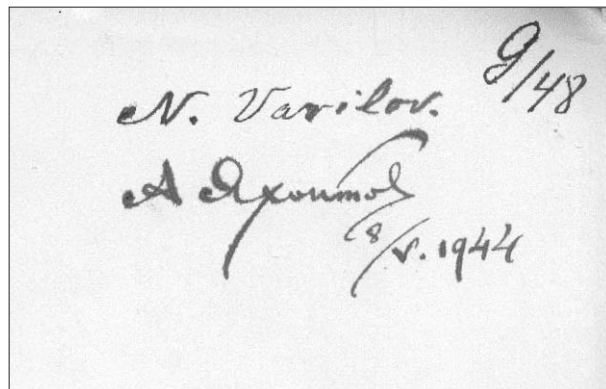 9/48
N. Vavilov.
А Яхонтов
8/V. 1944